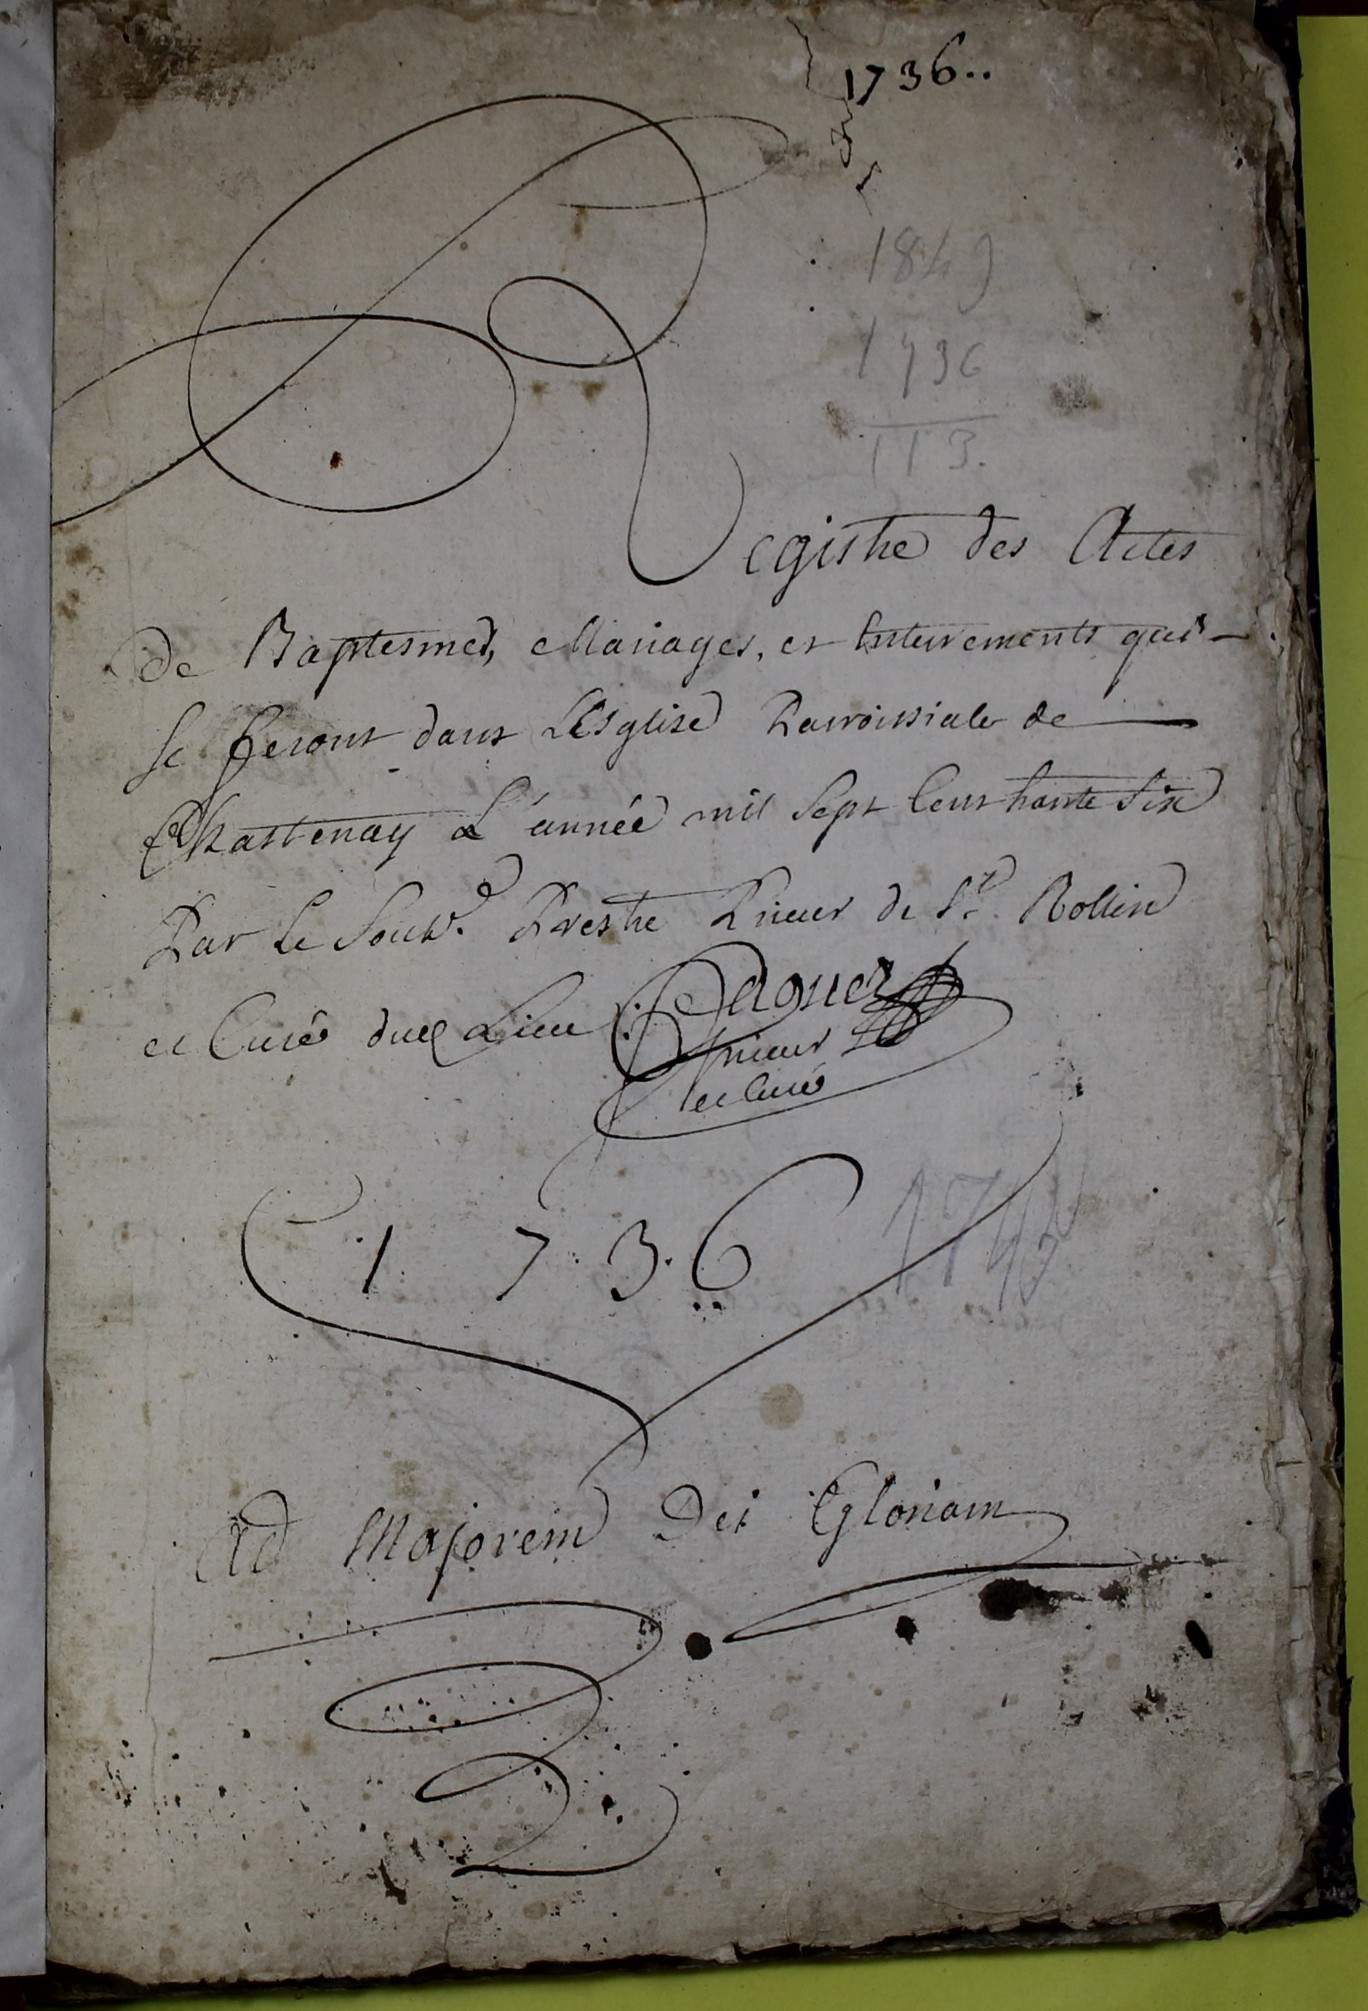 1736..
1849
1736
113.
Registre des Actes
De Baptesmes, Mariages, et Enterrements qui
se feront dans L'Esglise Parroissiale de
Chastenay L'année mil Sept Cent trante Six
Par Le Sous.é Prestre Prieur de St. Rollin
et Curé dud Lieu
prieur
et Curé
1 7 3 6
Ad Majorem Dei Gloriam